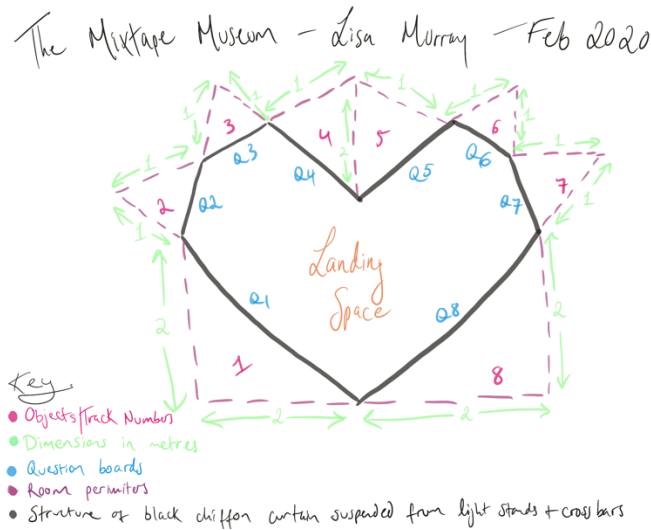 The Mixtape Museum - Lisa Murray - Feb 2020
1 1 1 1
1 3 4 2 5 6 1
1 Q3 Q4 Q5 Q6 1
2 Q2 Q7 7
1 1
Landing
Space
2 Q1 Q8 2
1 8
2 2
Key
Objects/Track Numbers
Dimensions in metres
Question boards
Room perimiters
Structure of black chiffon curtain suspended from light stands + cross bars